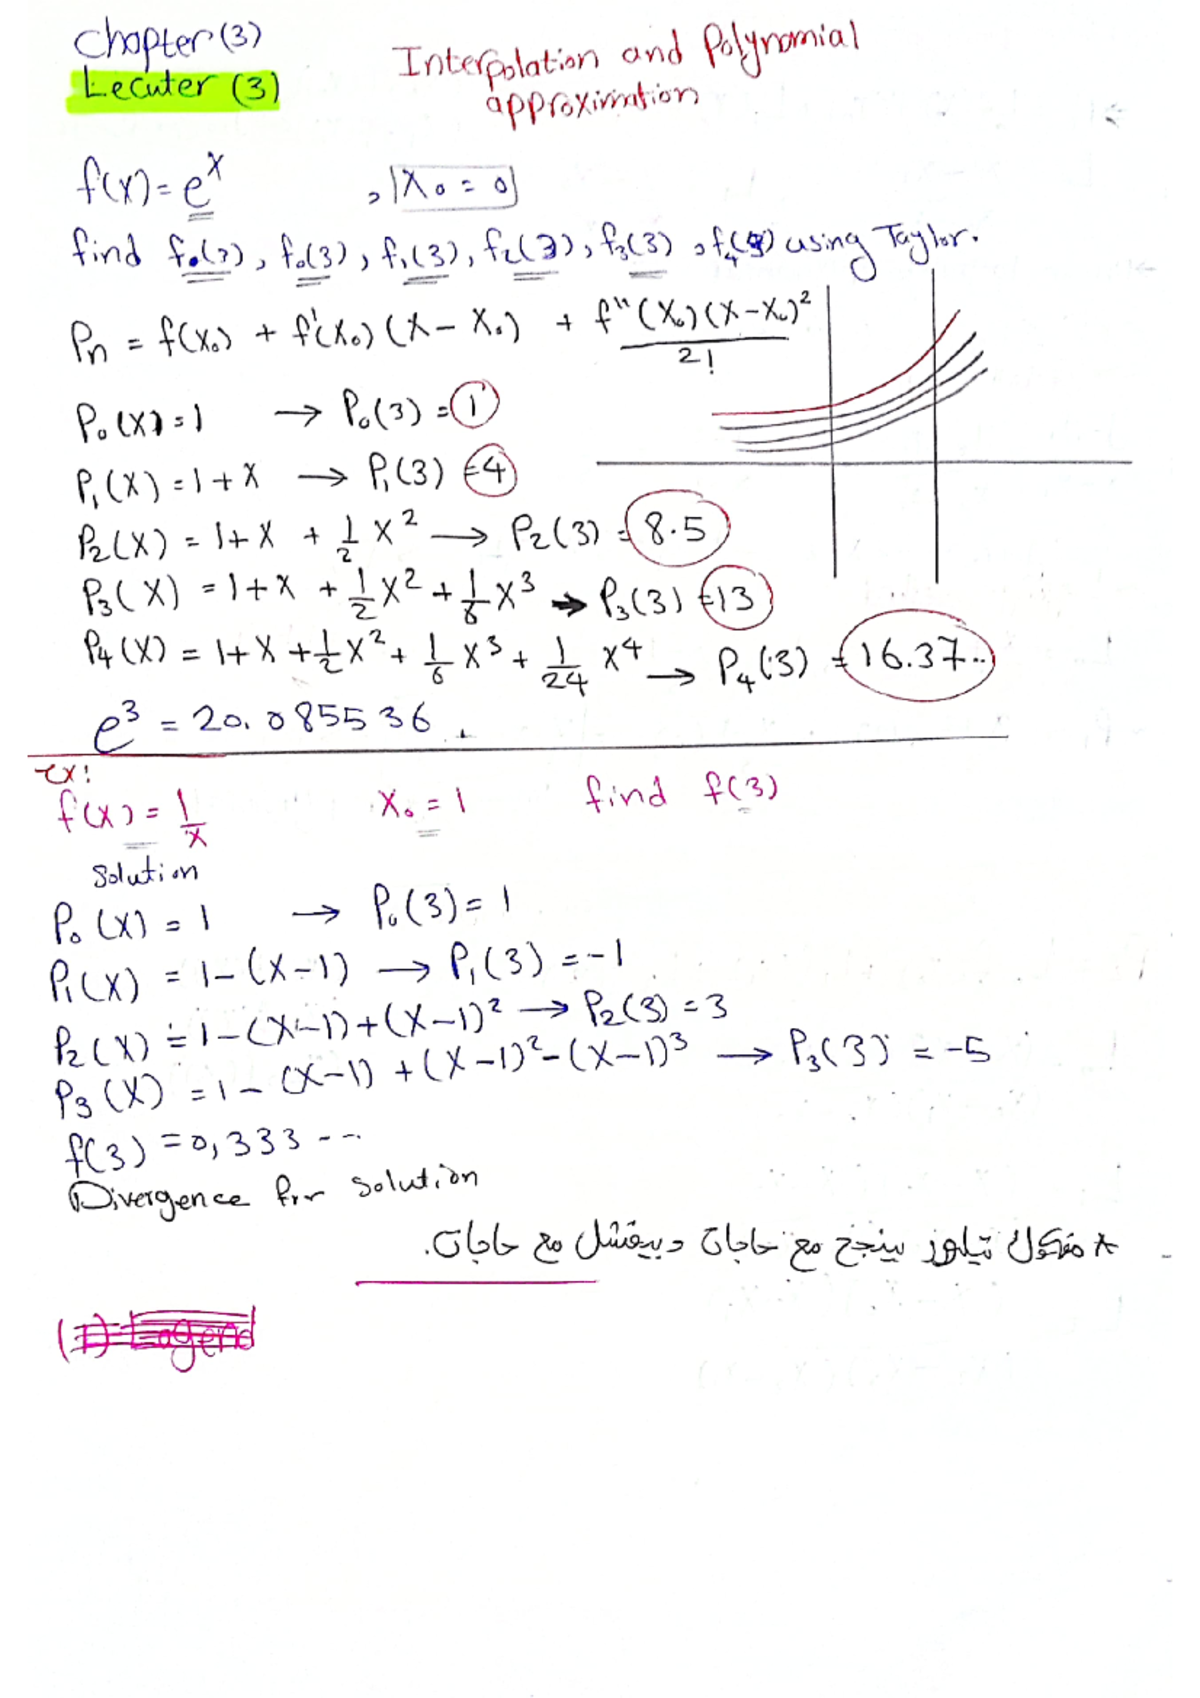 Chapter (3)
Lecuter (3)
Interpolation and Polynomial
approximation
f(x) = e^x , x₀ = 0
find f₀(3), f₀(3), f₁(3), f₂(3), f₃(3), f₄(3) using Taylor.
Pn = f(x₀) + f'(x₀)(x - x₀) + f''(x₀)(x-x₀)² / 2!
P₀(x) = 1 → P₀(3) = 1
P₁(x) = 1 + x → P₁(3) = 4
P₂(x) = 1 + x + 1/2 x² → P₂(3) = 8.5
P₃(x) = 1 + x + 1/2 x² + 1/6 x³ → P₃(3) = 13
P₄(x) = 1 + x + 1/2 x² + 1/6 x³ + 1/24 x⁴ → P₄(3) = 16.37..
e³ = 20.0855 36.
ex:
f(x) = 1/x x₀ = 1 find f(3)
Solution
P₀(x) = 1 → P₀(3) = 1
P₁(x) = 1 - (x-1) → P₁(3) = -1
P₂(x) = 1 - (x-1) + (x-1)² → P₂(3) = 3
P₃(x) = 1 - (x-1) + (x-1)² - (x-1)³ → P₃(3) = -5
f(3) = 0,333 ---
Divergence for solution
* مفكوك تيلور بينجح مع حاجات وبيفشل مع حاجات.